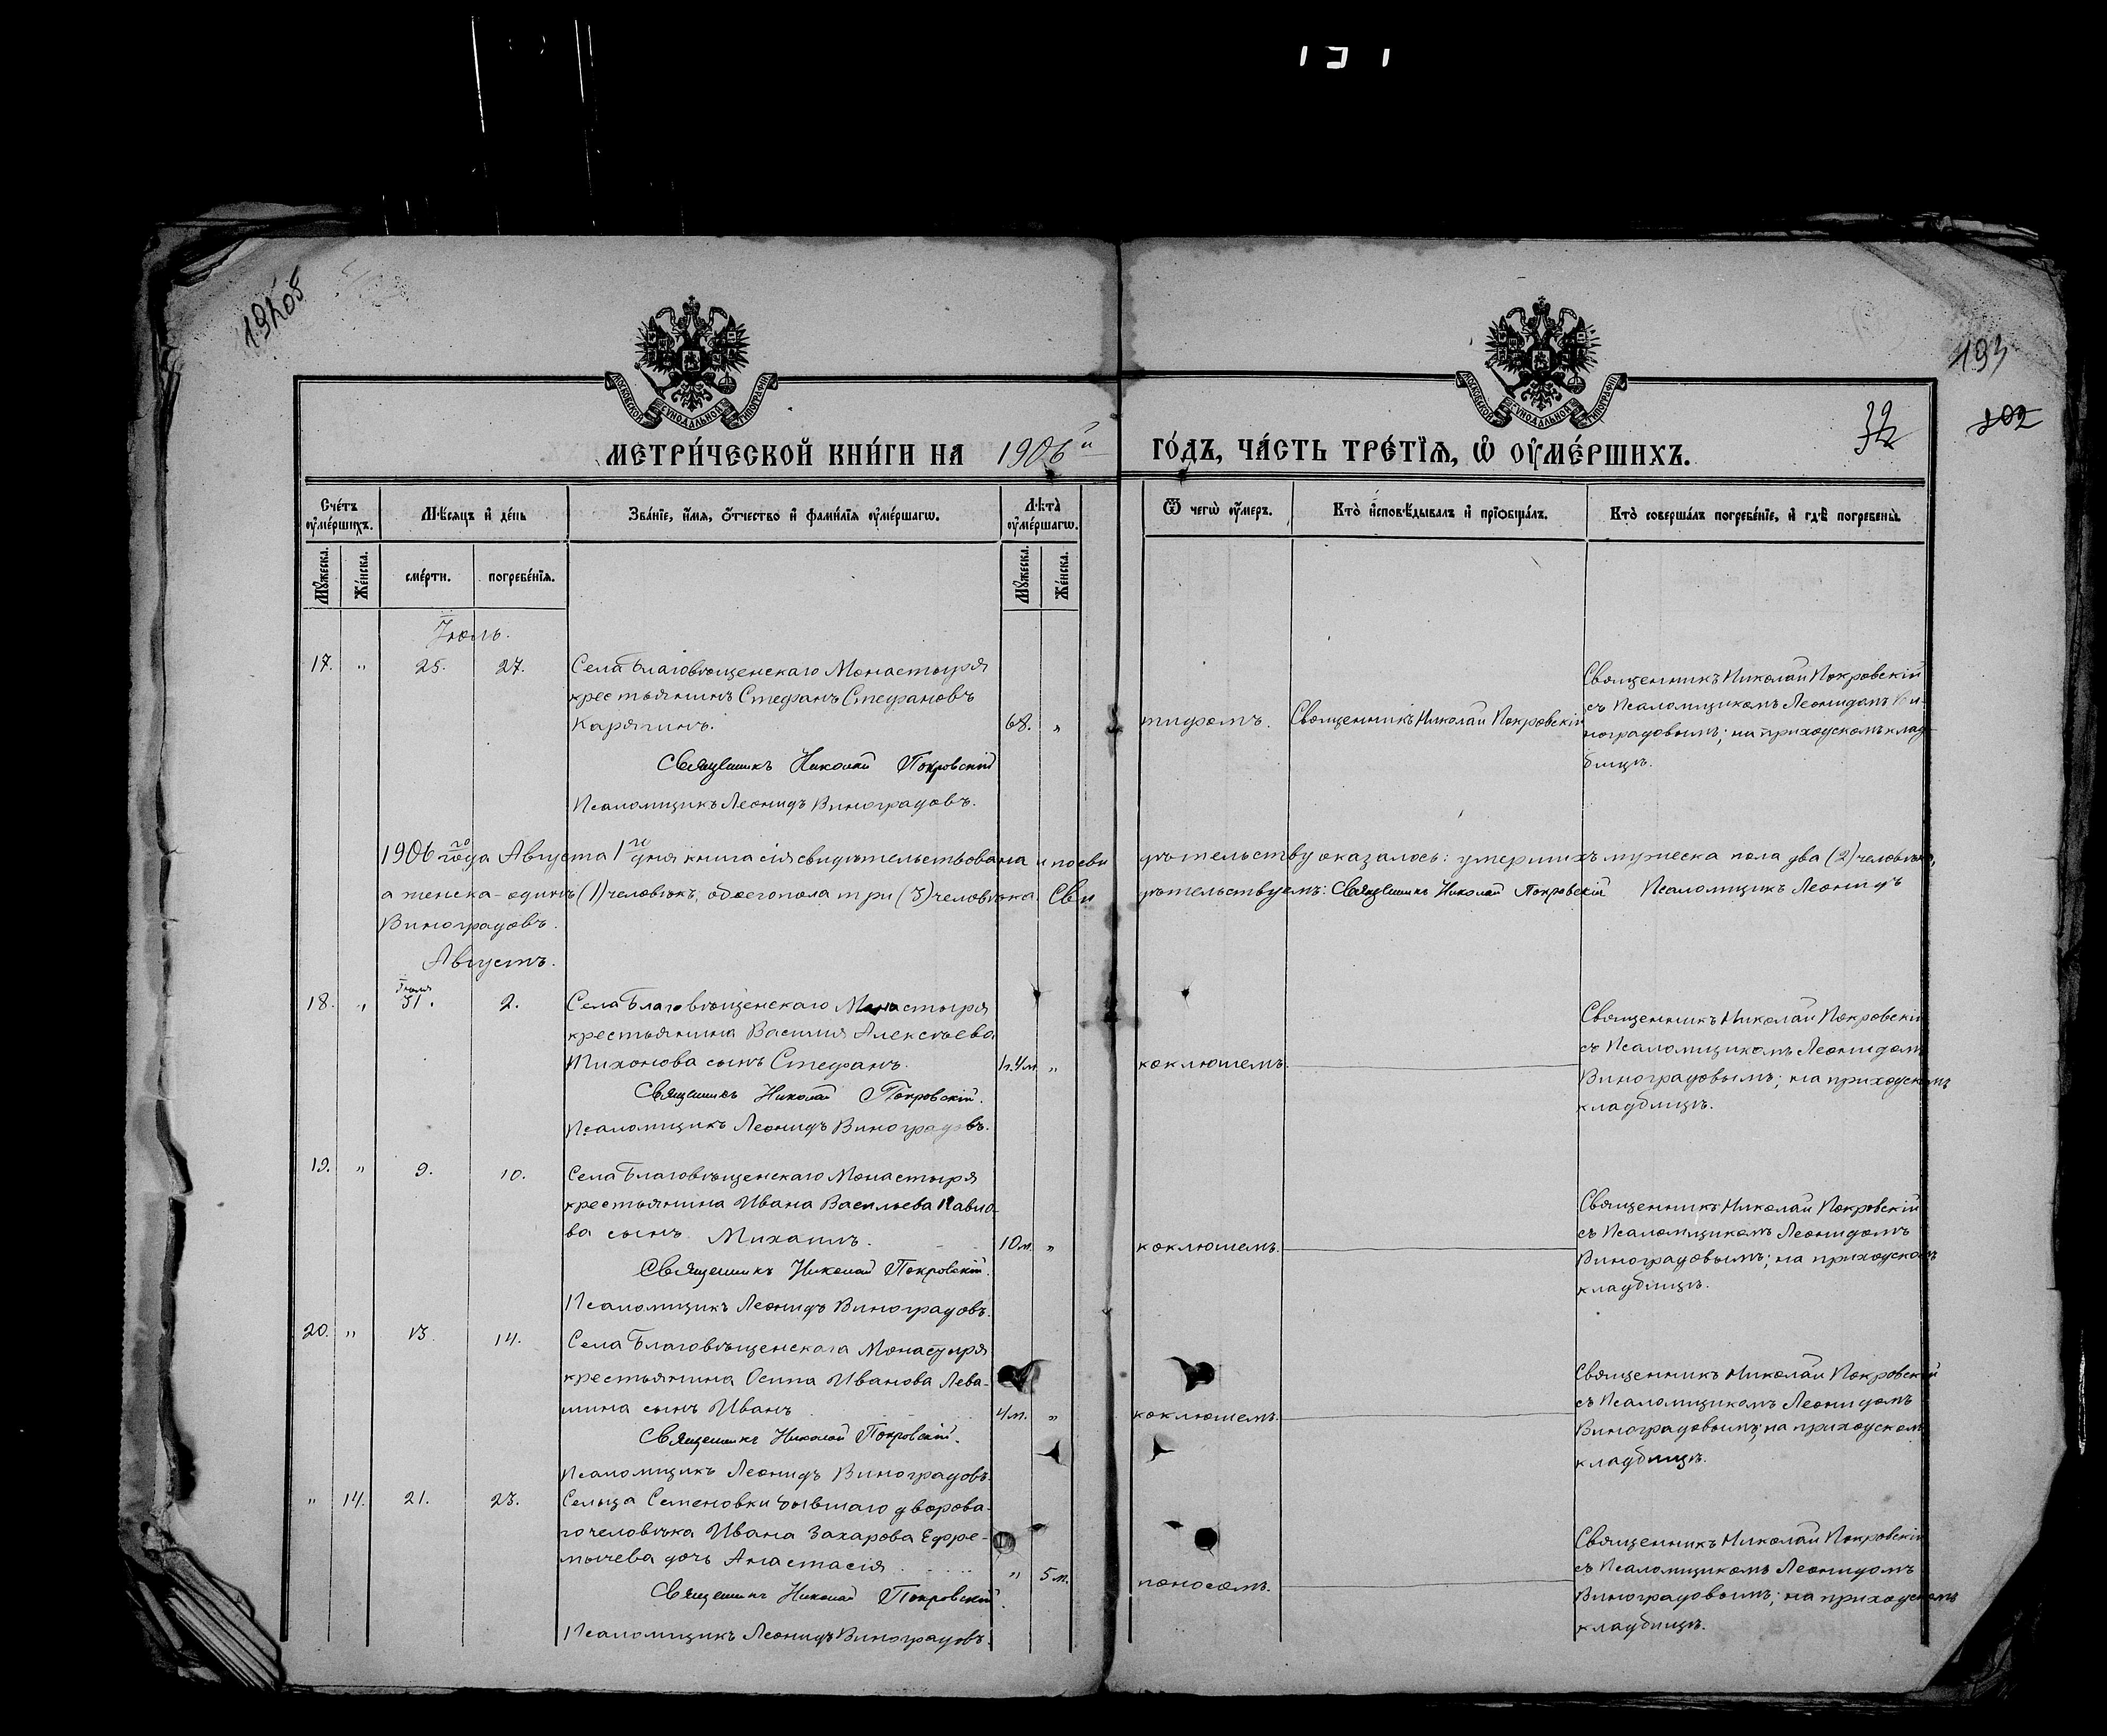 193об
193
32
202
МОСКОВСКОЙ СѴНОДАЛЬНОЙ ТИПОГРАФІИ
МОСКОВСКОЙ СѴНОДАЛЬНОЙ ТИПОГРАФІИ
МЕТРИ́ЧЕСКОЙ КНИ́ГИ НА 1906й ГО́ДЪ, ЧА́СТЬ ТРЕ́ТЇѦ, Ѽ ОУ҆МЕ́РШИХЪ.
Сче́тъ оу҆ме́ршихъ.
Мѣ́сяцъ и҆ де́нь
Зва́нїе, и҆́мя, ѻ҆́тчество и҆ фами́лїя оу҆ме́ршагѡ.
Лѣ́та оу҆ме́ршагѡ.
Ѿ чегѡ̀ оу҆́меръ.
Кто̀ и҆сповѣ́дывалъ и҆ прїѻбща́лъ.
Кто̀ соверша́лъ погребе́нїе, и҆ гдѣ̀ погребены̀
Мꙋ́жеска.
Же́нска.
сме́рти.
погребе́нїя.
Мꙋ́жеска.
Же́нска.
Іюль.
17. " 25. 27. Села Благовѣщенскаго Монастыря
крестьянинъ Стефанъ Стефановъ
Карягинъ. 68. " тифомъ. Священникъ Николай Покровскій
Священникъ Николай Покровскій
Псаломщикъ Леонидъ Виноградовъ.
Священникъ Николай Покровскій
съ Псаломщикомъ Леонидомъ Ви-
ноградовымъ; на приходскомъ клад-
бищѣ.
1906го года Августа 1го дня книга сія свидѣтельствована и по сви дѣтельству оказалось: умершихъ мужеска пола два (2) человѣка,
а женска - одинъ (1) человѣкъ, обоего пола три (3) человѣка. Сви дѣтельствуемъ: Священникъ Николай Покровскій Псаломщикъ Леонидъ
Виноградовъ.
Августъ.
Іюля
18. " 31. 2. Села Благовѣщенскаго Монастыря
крестьянина Василия Алексѣева
Тихонова сынъ Стефанъ. 1г.4м. " коклюшемъ.
Священникъ Николай Покровскій.
Псаломщикъ Леонидъ Виноградовъ.
Священникъ Николай Покровскій
съ Псаломщикомъ Леонидомъ
Виноградовымъ; на приходскомъ
кладбищѣ.
19. " 9. 10. Села Благовѣщенскаго Монастыря
крестьянина Ивана Васильева Павло-
ва сынъ Михаилъ. 10м. " коклюшемъ.
Священникъ Николай Покровскій.
Псаломщикъ Леонидъ Виноградовъ.
Священникъ Николай Покровскій
съ Псаломщикомъ Леонидомъ
Виноградовымъ; на приходскомъ
кладбищѣ.
20. " 13. 14. Села Благовѣщенскаго Монастыря
крестьянина Осипа Иванова Лева-
шина сынъ Иванъ 4м. " коклюшемъ.
Священникъ Николай Покровскій.
Псаломщикъ Леонидъ Виноградовъ.
Священникъ Николай Покровскій
съ Псаломщикомъ Леонидомъ
Виноградовымъ; на приходском
кладбищѣ.
" 14. 21. 23. Сельца Семеновки бывшаго дворова-
го человѣка Ивана Захарова Ефре-
мычева дочь Анастасія " 5м. поносомъ.
Священникъ Николай Покровскій.
Псаломщикъ Леонидъ Виноградовъ.
Священникъ Николай Покровскій
съ Псаломщикомъ Леонидомъ
Виноградовымъ; на приходскомъ
кладбищѣ.